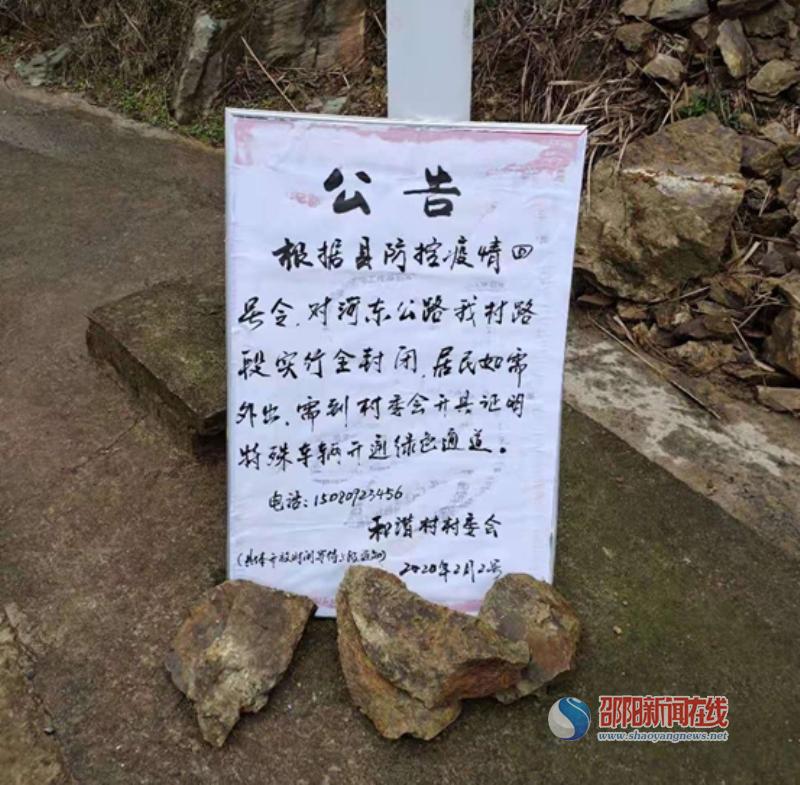 公告
根据县防控疫情四
号令,对河东公路我村路
段实行全封闭,居民如需
外出,需到村委会开具证明
特殊车辆开通绿色通道。
电话:15080923456
和谐村村委会
(具体开放时间等待上级通知)
2020年2月2号
邵阳新闻在线
www.shaoyangnews.net